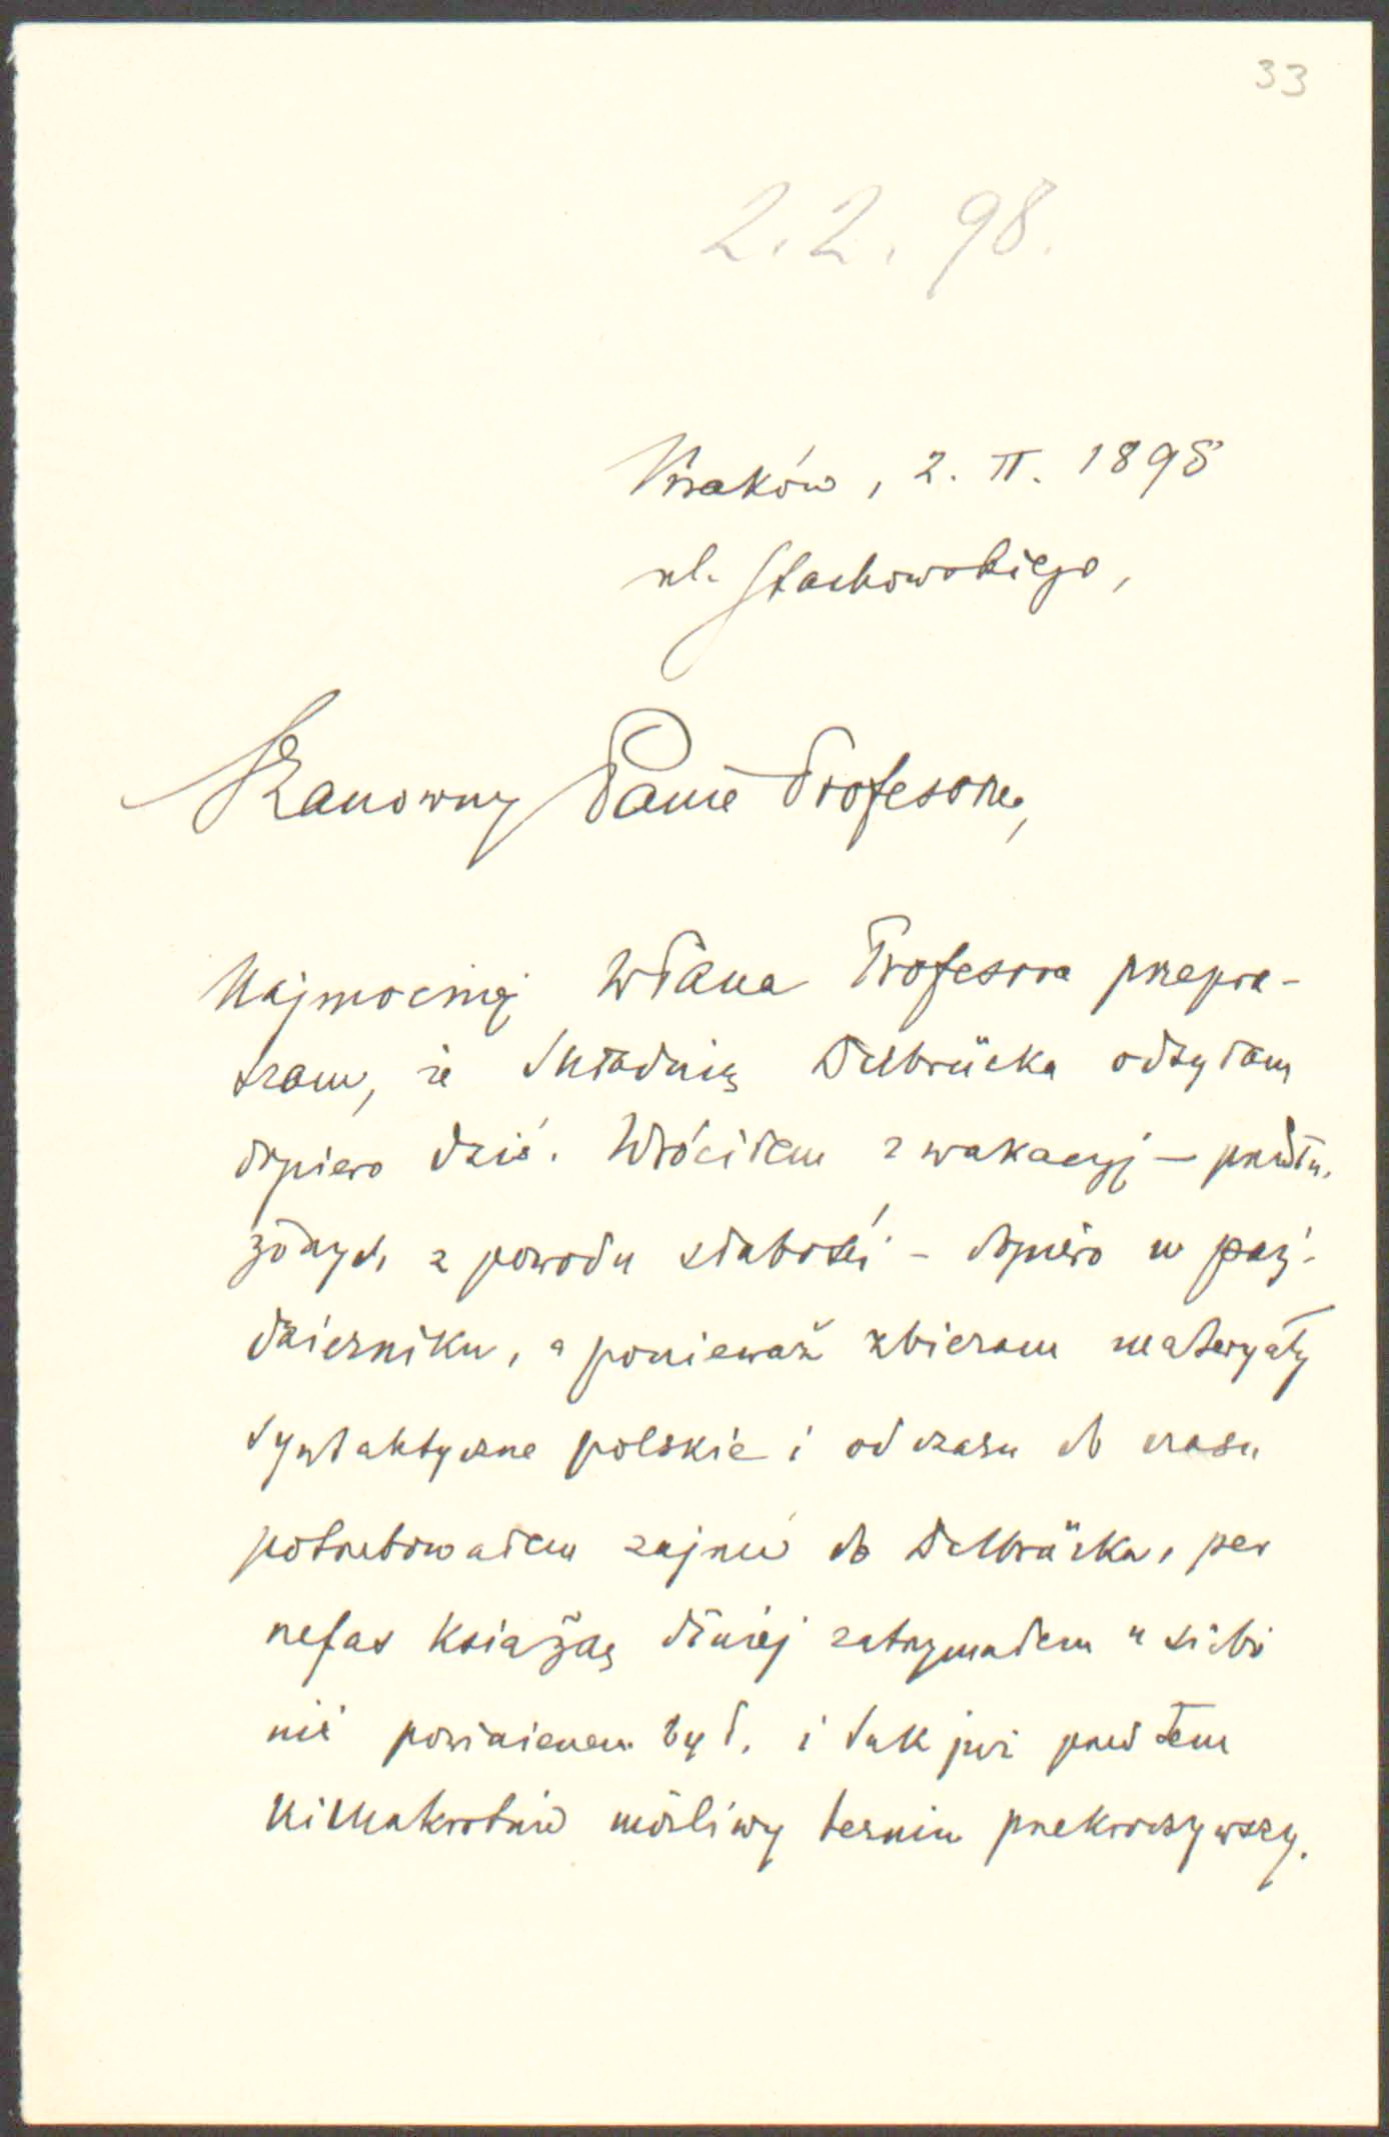 33
2. 2. 98.
Kraków, 2. II. 1898
ul. Stachowskiego,
Szanowny Panie Profesorze,
Najmocniej WPana Profesora przepra-
szam, że Składnię Delbrücka odsyłam
dopiero dziś. Wróciłem z wakacyj — przedłu-
żonych z powodu słabości – dopiero w paź-
dzierniku, a ponieważ zbieram materyały
syntaktyczne polskie i od czasu do czasu
potrzebowałem zajrzeć do Delbrücka, per
nefas książkę dłużej zatrzymałem u siebie
niż powinienem był, i tak już przedtem
kilkakrotnie możliwy termin przekroczywszy.